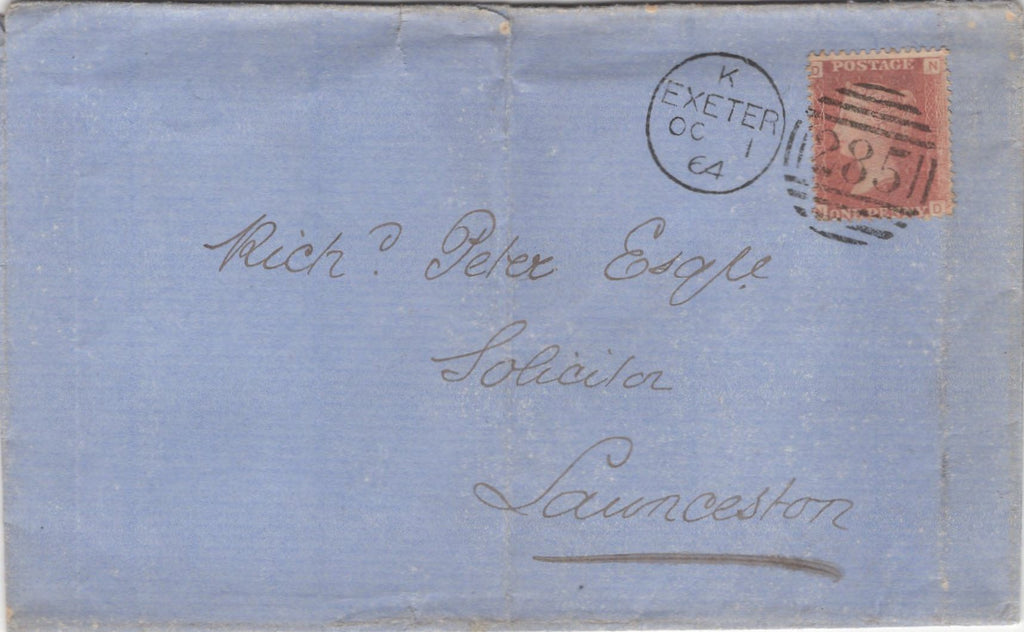 K
EXETER
OC 1
64
D POSTAGE N
285
N ONE PENNY D
Richd Peter Esqre
Solicitor
Launceston